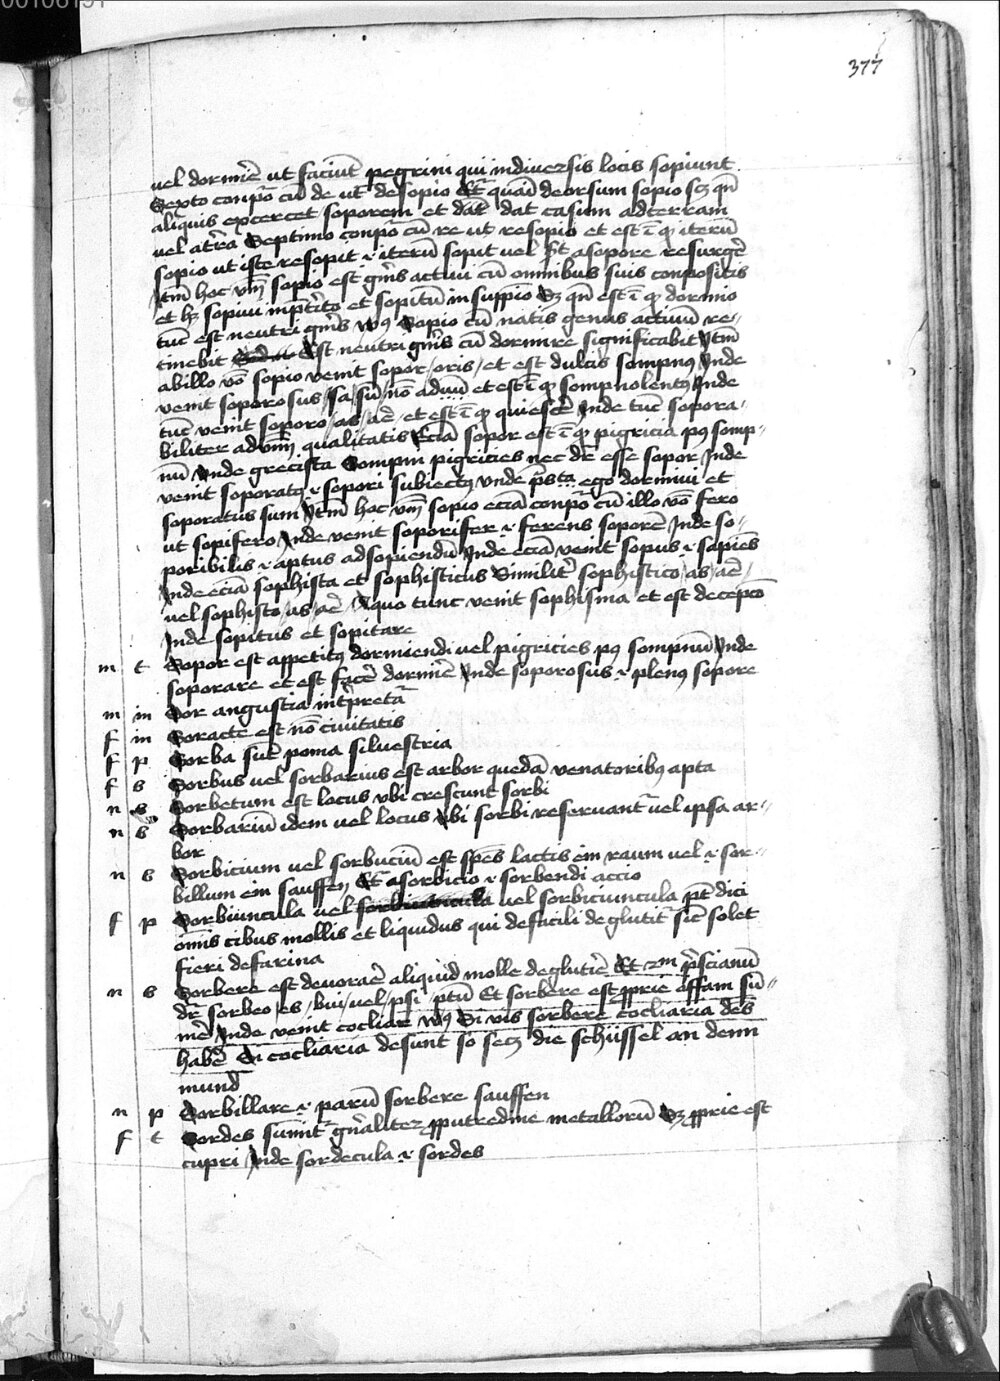 377
vel dormiē̄ ut faciūt pegrini qui indiuersis locis sopiunt
Sexto conpo cū de ut desopio Et quasi deorsum sopio scz qn̄
aliquis excercet soporem et dat casum adterram
vel at̄ra Septimo conpo cū re ut resopio et est ī qʒ iterū
sopio ut iste resopit ⁊ iterū sopit vel asopore resurgē
Itm̄ hoc vm̄ sopio est gn̄is actiui cū omnibus suis conpositis
et hʒ sopiui inp̄terito et sopitū in suppīo Sʒ qn̄ est ī qʒ dormio
tūc est neutri gn̄is vʒ Sopio cū natis genus actiuū re-
tinebit Est neutri gn̄is cū dormire significabit Itm̄
abillo vō sopio venit sopor/oris/et est dulcis sompnʒ Inde
venit soporosus/sa/sū/nō adiuū et est ī qʒ sompnolentʒ Inde
tūc venit soporo/as/aē/et est ī qʒ quiescē Inde tūc sopora-
biliter adum̄ qualitatis Eciā sopor est ī qʒ pigricia pʒ somp-
nū Vnde grecista Sompni pigricies nec dr̄ esse sopor Inde
venit soporatʒ ⁊ sopori subiectʒ vnde p̄sta ego dormiui et
soporatus sum Itm̄ hoc vm̄ sopio eciā conpo cū illo vō fero
ut sopifero Inde venit soporifer ⁊ ferens soporē Inde so-
poribilis ⁊ aptus adsopiendū Inde eciā venit sopus ⁊ sapiēs
Inde eciā sophista et sophisticus Similit̄ sophistico/as/aē/
vel sophisto/as/aē/ Aquo tunc venit sophisma et est decepcō
Inde sopitus et sopitare
m t Sopor est appetitʒ dormiendi vel pigricies pʒ sompnū Inde
soporare et est facē dormiē Inde soporosus ⁊ plenʒ sopore
m in Sor angustia int̄pretā
f in Soracte est nō ciuitatis
f p Sorba sūt poma siluestria
f s Sorbus vel sorbarius est arbor quedā venatoribʒ apta
n s Sorbetum est locus vbi crescunt sorbi
n s Sorbariū idem vel locus vbi sorbi reseruant̄ vel ipsa ar-
bor
n s Sorbicium vel sorbuciū est sp̄es lactis ein raum vel ⁊ sor-
billum ein sauffen Et asorbicio ⁊ sorbendi accio
f p Sorbiuncula vel vel sorbiciuncula pt̄ dici
om̄is cibus mollis et liquidus qui defacili deglutit̄ sic̄ solet
fieri defarina
n s Sorbere est deuoraē aliquid molle deglutiē Et 2m p̄scianū
dr̄ sorbeo/es/bui/vel/psi/ptū Et sorbere est pprie offam sū-
mē Inde venit cocliar vʒ Si vis sorbere cocliaria debēs
habē Si cocliaria desunt so secz die schüssel an denn
mund
n p Sorbillare ⁊ parū sorbere sauffen
f t Sordes sūmit̄ gn̄aliter pputredine metallorū Sʒ pprie est
cupri Inde sordecula ⁊ sordes